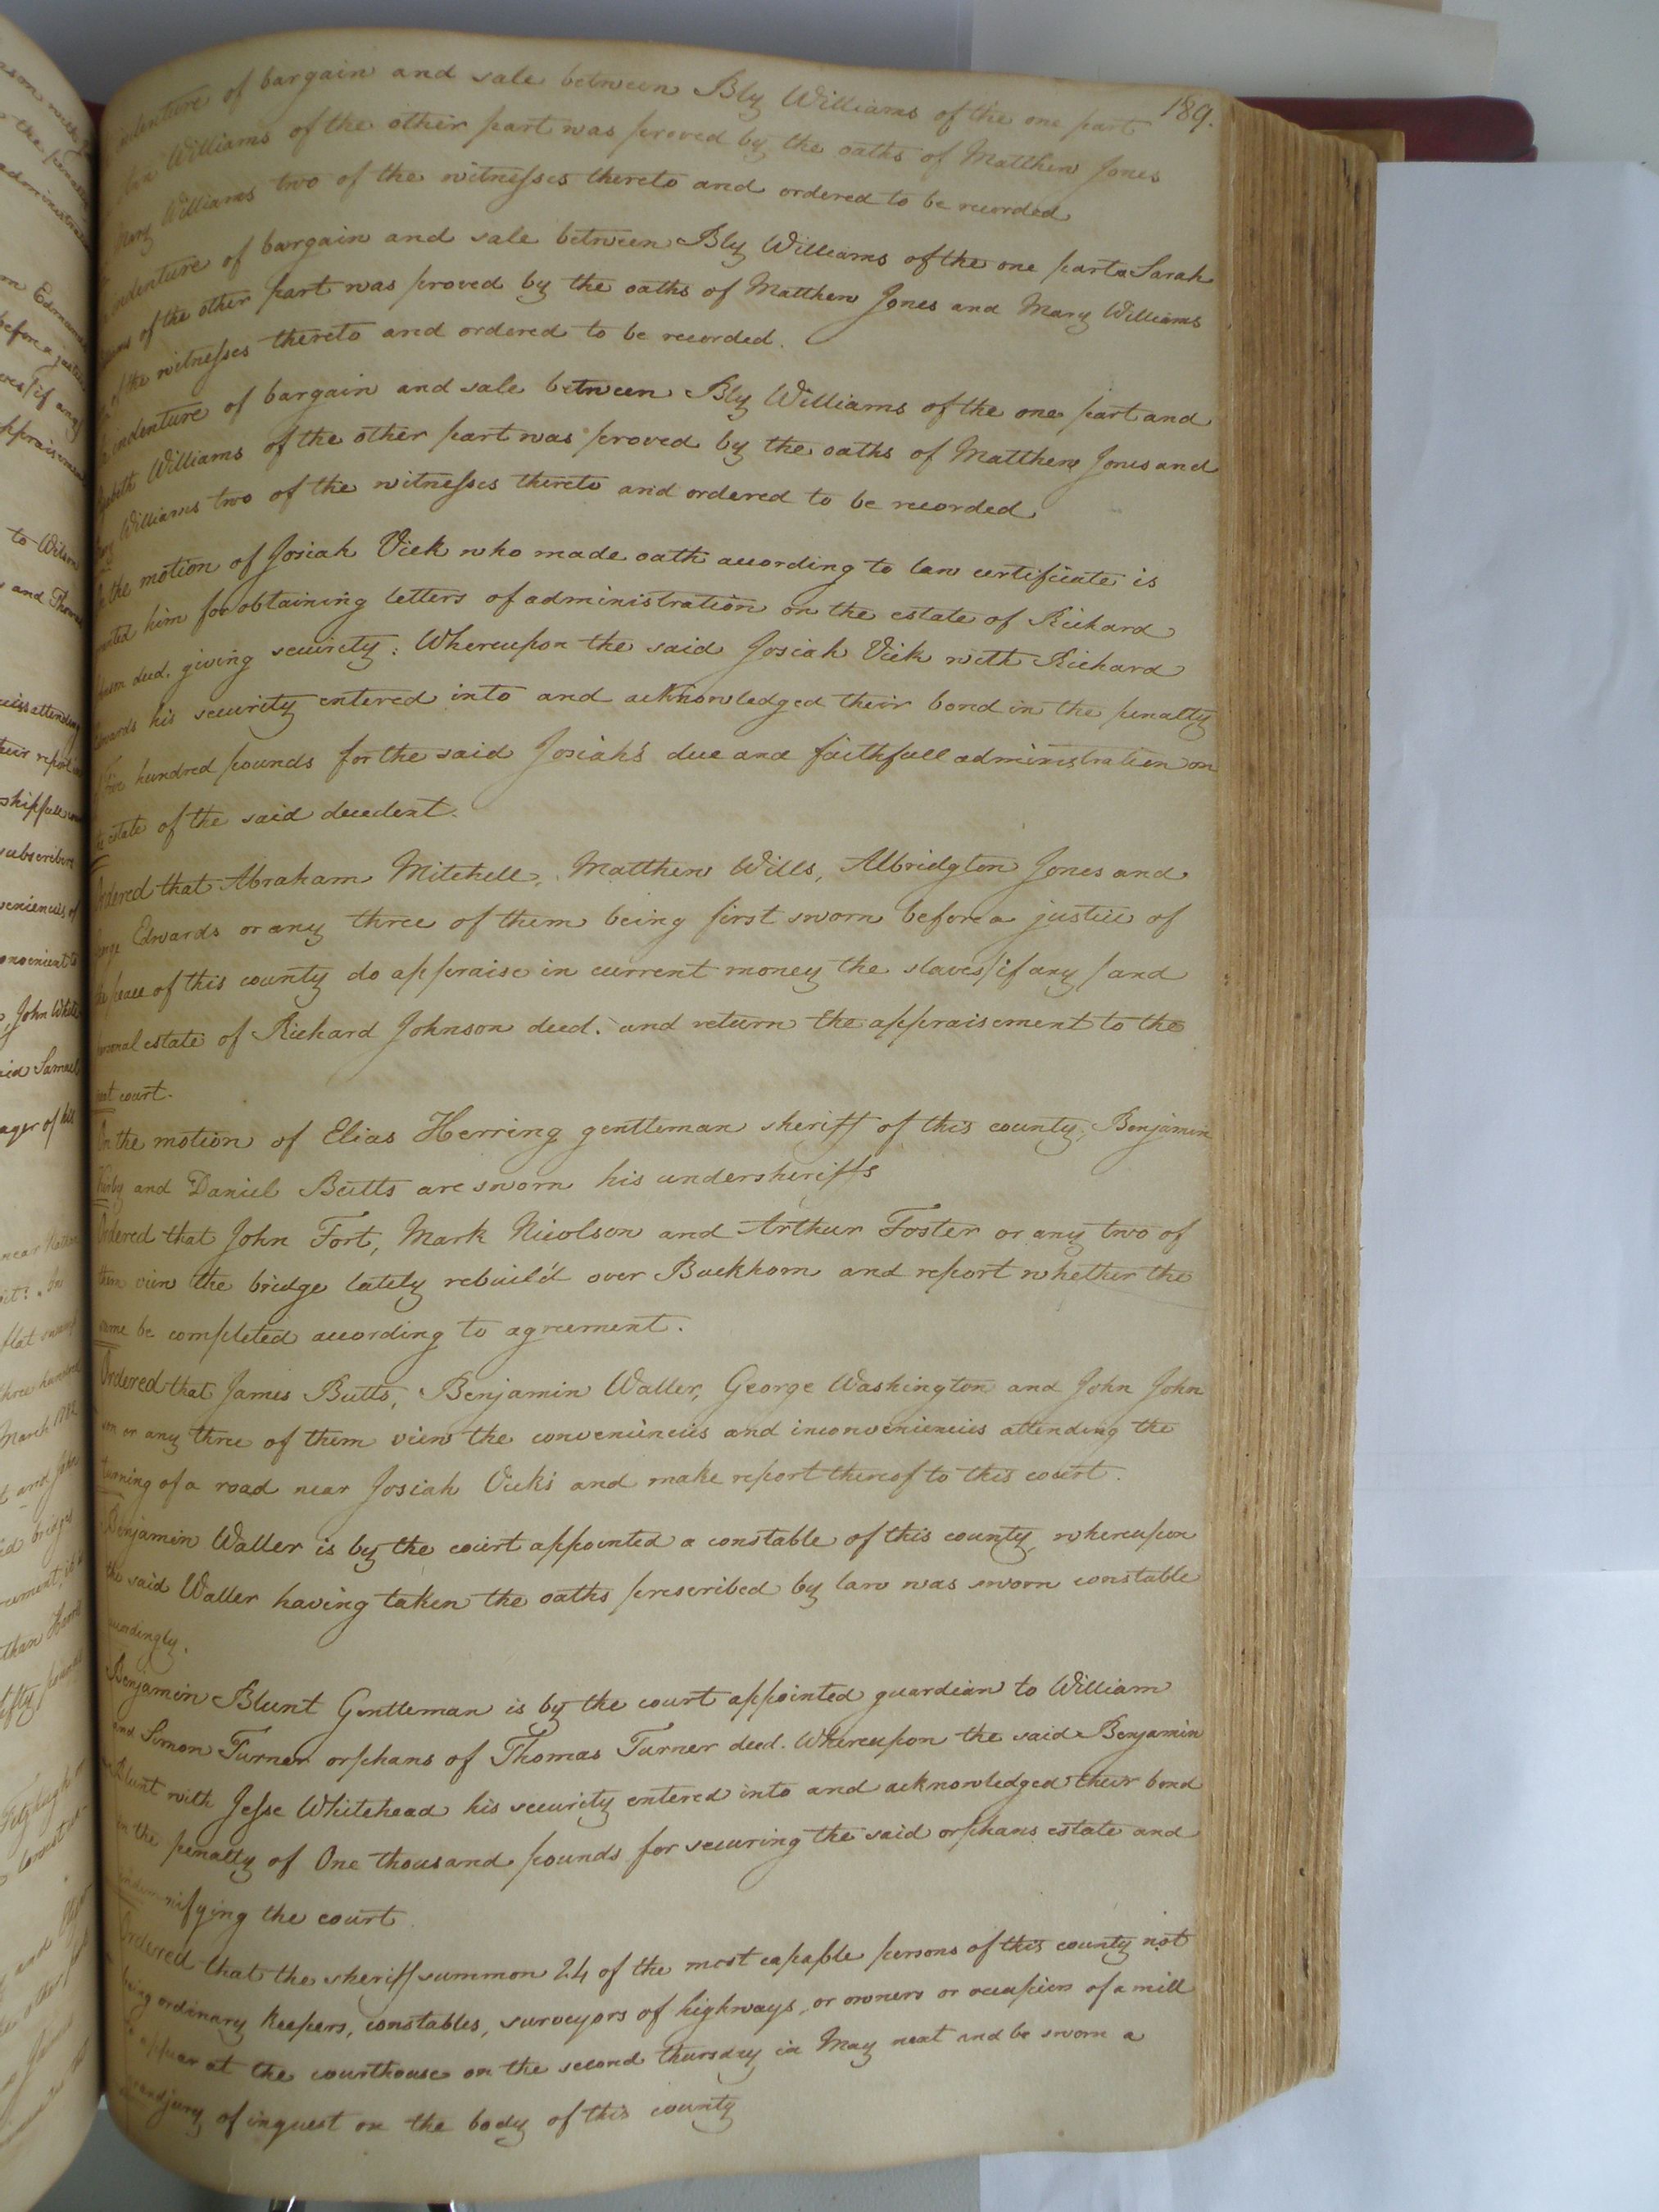 189.
indenture of bargain and sale between Bly Williams of the one part
Williams of the other part was proved by the oaths of Matthew Jones
Mary Williams two of the witnesses thereto and ordered to be recorded
indenture of bargain and sale between Bly Williams of the one part & Sarah
of the other part was proved by the oaths of Matthew Jones and Mary Williams
of the witnesses thereto and ordered to be recorded.
indenture of bargain and sale between Bly Williams of the one part and
Williams of the other part was proved by the oaths of Matthew Jones and
Williams two of the witnesses thereto and ordered to be recorded
the motion of Josiah Vick who made oath according to law certificate is
him for obtaining letters of administration on the estate of Richard
decd. giving security: Whereupon the said Josiah Vick with Richard
his security entered into and acknowledged their bond in the penalty
hundred pounds for the said Josiah's due and faithfull administration on
estate of the said decedent.
Ordered that Abraham Mitchell, Matthew Wills, Albridgton Jones and
Edwards or any three of them being first sworn before a justice of
peace of this county do appraise in current money the slaves /if any/ and
personal estate of Richard Johnson decd. and return the appraisement to the
next court.
On the motion of Elias Herring gentleman sheriff of this county, Benjamin
Kirby and Daniel Butts are sworn his undersheriffs
Ordered that John Fort, Mark Nicolson and Arthur Foster or any two of
them view the bridge lately rebuild over Buckhorn and report whether the
same be completed according to agreement.
Ordered that James Butts, Benjamin Waller, George Washington and John John
son or any three of them view the conveniencies and inconveniencies attending the
turning of a road near Josiah Vicks and make report thereof to this court.
Benjamin Waller is by the court appointed a constable of this county, whereupon
the said Waller having taken the oaths prescribed by law was sworn constable
accordingly.
Benjamin Blunt Gentleman is by the court appointed guardian to William
and Simon Turner orphans of Thomas Turner decd. Whereupon the said Benjamin
Blunt with Jesse Whitehead his security entered into and acknowledged their bond
in the penalty of One thousand pounds for securing the said orphans estate and
indemnifying the court.
Ordered that the sheriff summon 24 of the most capable persons of this county not
being ordinary keepers, constables, surveyors of highways, or owners or occupiers of a mill
appear at the courthouse on the second thursday in May next and be sworn a
grand jury of inquest on the body of this county